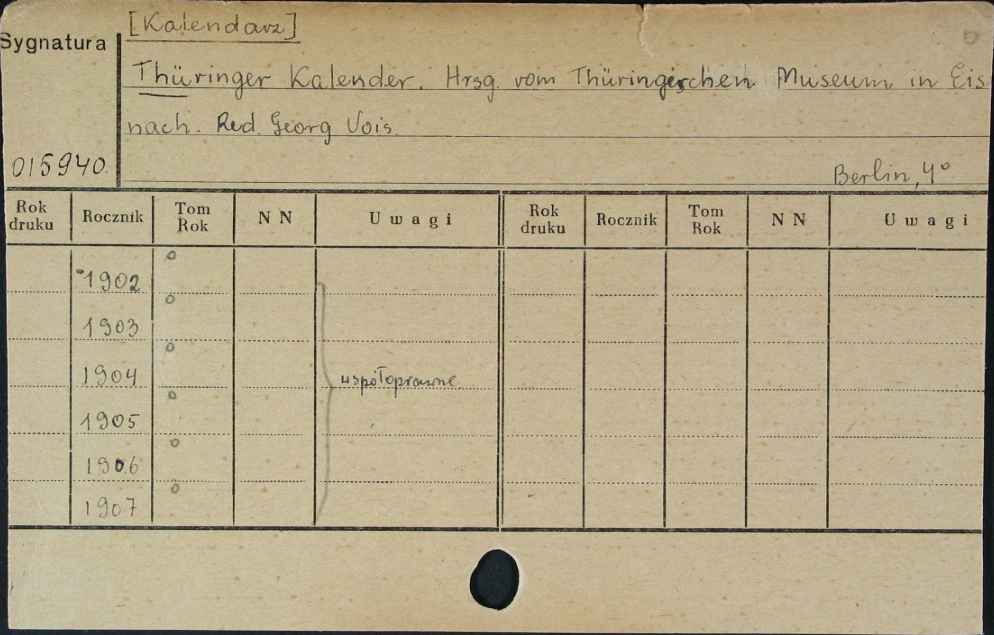 [Kalendarz]
Sygnatura
Thüringer Kalender. Hrsg. vom Thüringischen Museum in Eis
nach. Red. Georg Vois.
015940.
Berlin, 4°
Rok druku Rocznik Tom Rok N N Uwagi Rok druku Rocznik Tom Rok N N Uwagi
1902
1903
1904 współoprawne
1905
1906
1907